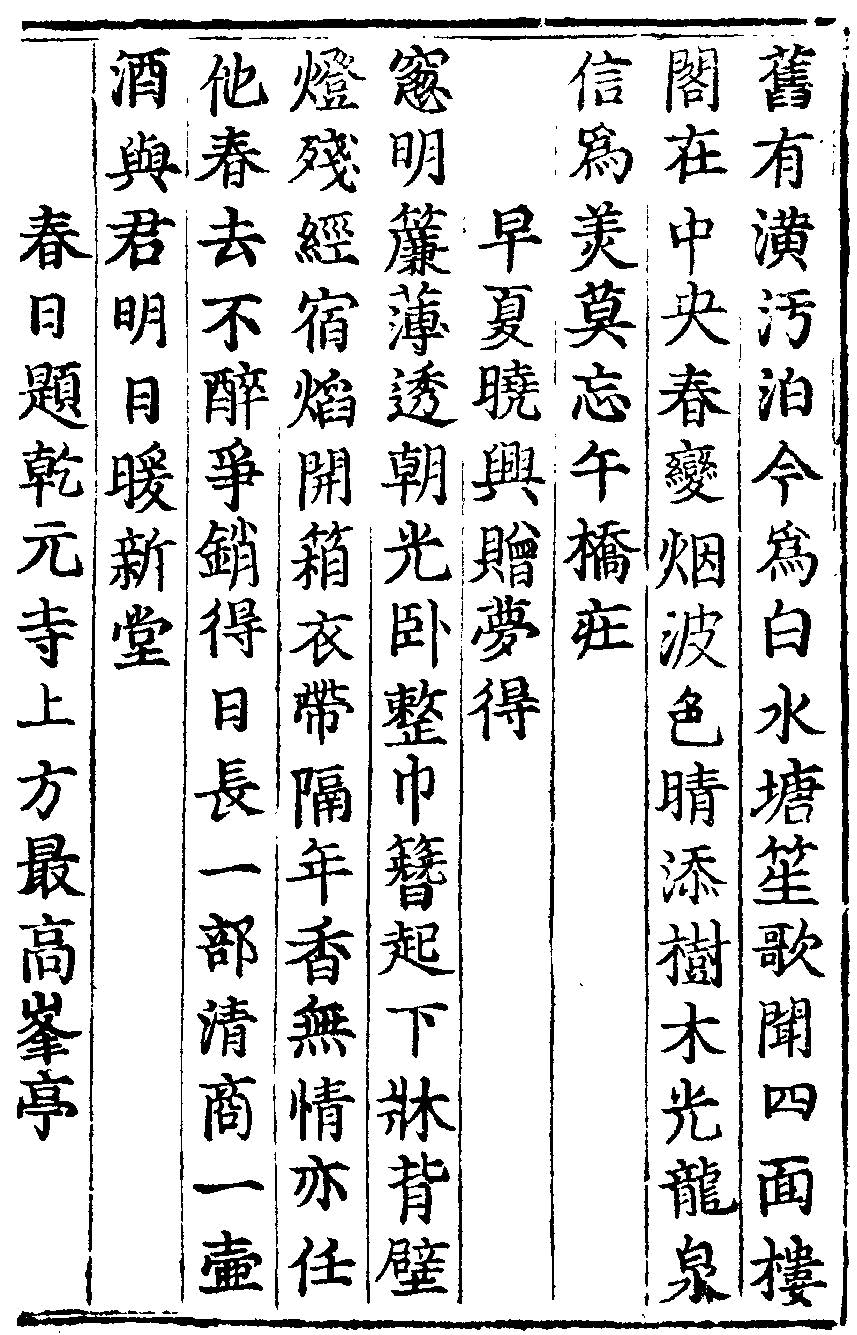 舊有潢汚泊今爲白水塘笙歌聞四面樓
閣在中央春變烟波色晴添樹木光龍泉
信爲美莫忘午橋庄
早夏曉興贈夢得
窻明簾薄透朝光卧整巾簪起下牀背壁
燈殘經宿焰開箱衣帶隔年香無情亦任
他春去不醉爭銷得日長一部清商一壷
酒與君明日暖新堂
春日題乾元寺上方最高峯亭